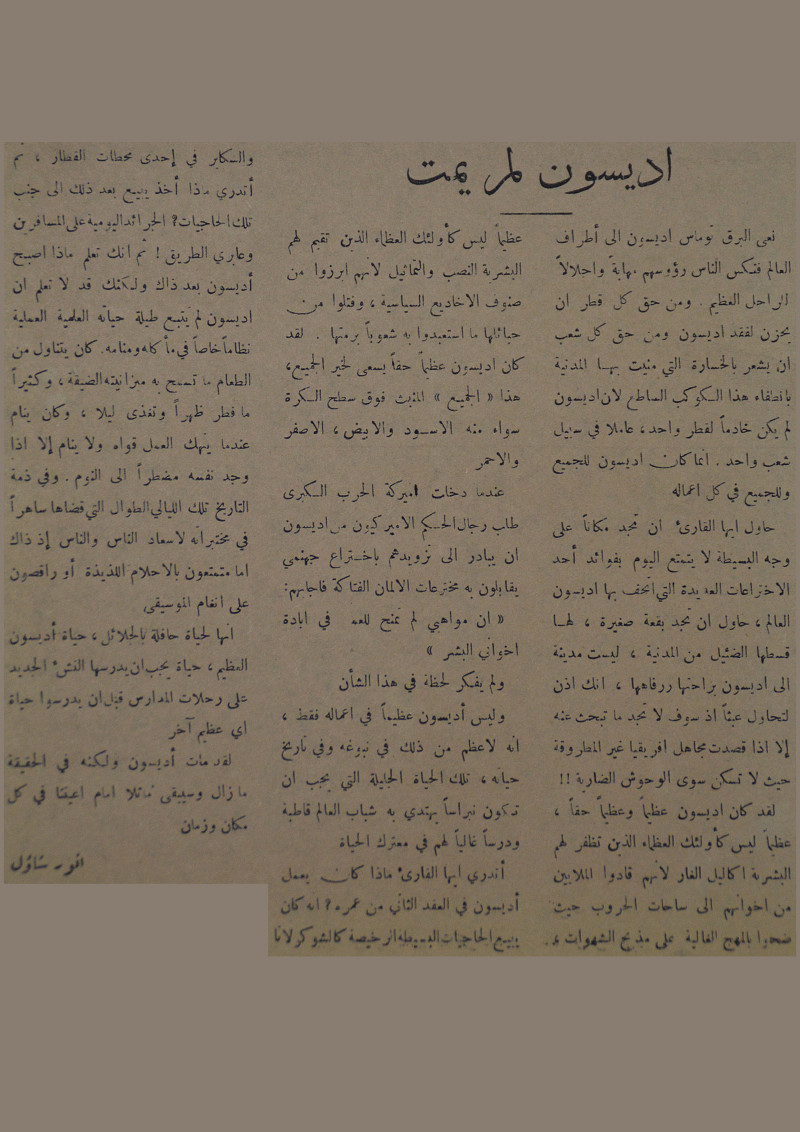 اديسون لم يمت
نعى البرق توماس اديسون الى أطراف
العالم فنكس الناس رؤوسهم مهابة واجلالاً
للراحل العظيم . ومن حق كل قطر ان
يحزن لفقد اديسون ومن حق كل شعب
ان يشعر بالخسارة التي منيت بها المدنية
بانطفاء هذا الكوكب الساطع لان اديسون
لم يكن خادماً لقطر واحد، عاملا في سبيل
شعب واحد . انما كان اديسون للجميع
وللجميع في كل اعماله
حاول ايها القارىء ان تجد مكاناً على
وجه البسيطة لا يتمتع اليوم بفوائد أحد
الاختراعات العديدة التي اتحف بها اديسون
العالم ، حاول ان تجد بقعة صغيرة ، لها
قسطها الضئيل من المدنية ، ليست مدينة
الى اديسون براحتها ررفاهها ، انك اذن
لتحاول عبثاً اذ سوف لا تجد ما تبحث عنه
إلا اذا قصدت مجاهل افريقيا غير المطروقة
حيث لا تسكن سوى الوحوش الضارية !!
لقد كان اديسون عظيماً وعظياً حقاً ،
عظياً ليس كأولئك العظاء الذين تظفر لهم
البشرية اكاليل الغار لأنهم قادوا الملايين
من اخوانهم الى ساحات الحروب حيث
ضحوا بالمهج الغالية على مذبح الشهوات ،
عظيماً ليس كأولئك العظاء الذين تقيم لهم
البشرية النصب والتماثيل لأنهم ابرزوا من
صنوف الاخاديع السياسية ، وفتلوا من
حبائلها ما استعبدوا به شعوباً برمتها . لقد
كان اديسون عظياً حقاً يسعى لخير الجميع،
هذا « الجميع » المنبث فوق سطح الكرة
سواء منه الاسود والابيض ، الاصفر
والاحمر
عندما دخلت اميركة الحرب الكبرى
طلب رجال الحكم الاميركيون من اديسون
ان يبادر الى تزويدهم باختراع جهنمي
يقابلون به مخترعات الالمان الفتاكة فاجابهم:
« ان مواهبي لم تمنح للعمـ في ابادة
اخواني البشر »
ولم يفكر لحظة في هذا الشأن
وليس أديسون عظيماً في اعماله فقط ،
انه لاعظم من ذلك في نبوغه وفي تاريخ
حياته ، تلك الحياة الجليلة التي يجب ان
تكون نبراساً يهتدي به شباب العالم قاطبة
ودرساً غالياً لهم في معترك الحياة
أتدري ايها القارىء ماذا كان يعمل
أديسون في العقد الثاني من عمره ؟ انه كان
يبيع الحاجيات البسيطة الرخيصة كالشوكولاتا
والسكاير في إحدى محطات القطار ، ثم
أتدري ماذا أخذ يبيع بعد ذلك الى جنب
تلك الحاجيات؟ الجرائد اليومية على المسافرين
وعابري الطريق ! ثم انك تعلم ماذا اصبح
أديسون بعد ذاك ولكنك قد لا تعلم ان
اديسون لم يتبع طيلة حياته العلمية العملية
نظاماً خاصاً في مأكله ومنامه. كان يتناول من
الطعام ما تسمح به ميزانيته الضيقة ، وكثيراً
ما فطر ظهراً وتغذى ليلا ، وكان ينام
عندما ينهك العمل قواه ولا ينام إلا اذا
وجد نفسه مضطراً الى النوم . وفي ذمة
التاريخ تلك الليالي الطوال التي قضاها ساهراً
في مختبراته لاسعاد الناس والناس إذ ذاك
اما متمتعون بالاحلام اللذيذة أو راقصون
على انغام الموسيقى
انها لحياة حافلة بالجلائل ، حياة أديسون
العظيم ، حياة يجب ان يدرسها النشء الجديد
على رحلات المدارس قبل ان يدرسوا حياة
اي عظيم آخر
لقد مات أديسون ولكنه في الحقيقة
ما زال وسيبقى ماثلا امام اعيننا في كل
مكان وزمان
انور شاؤل